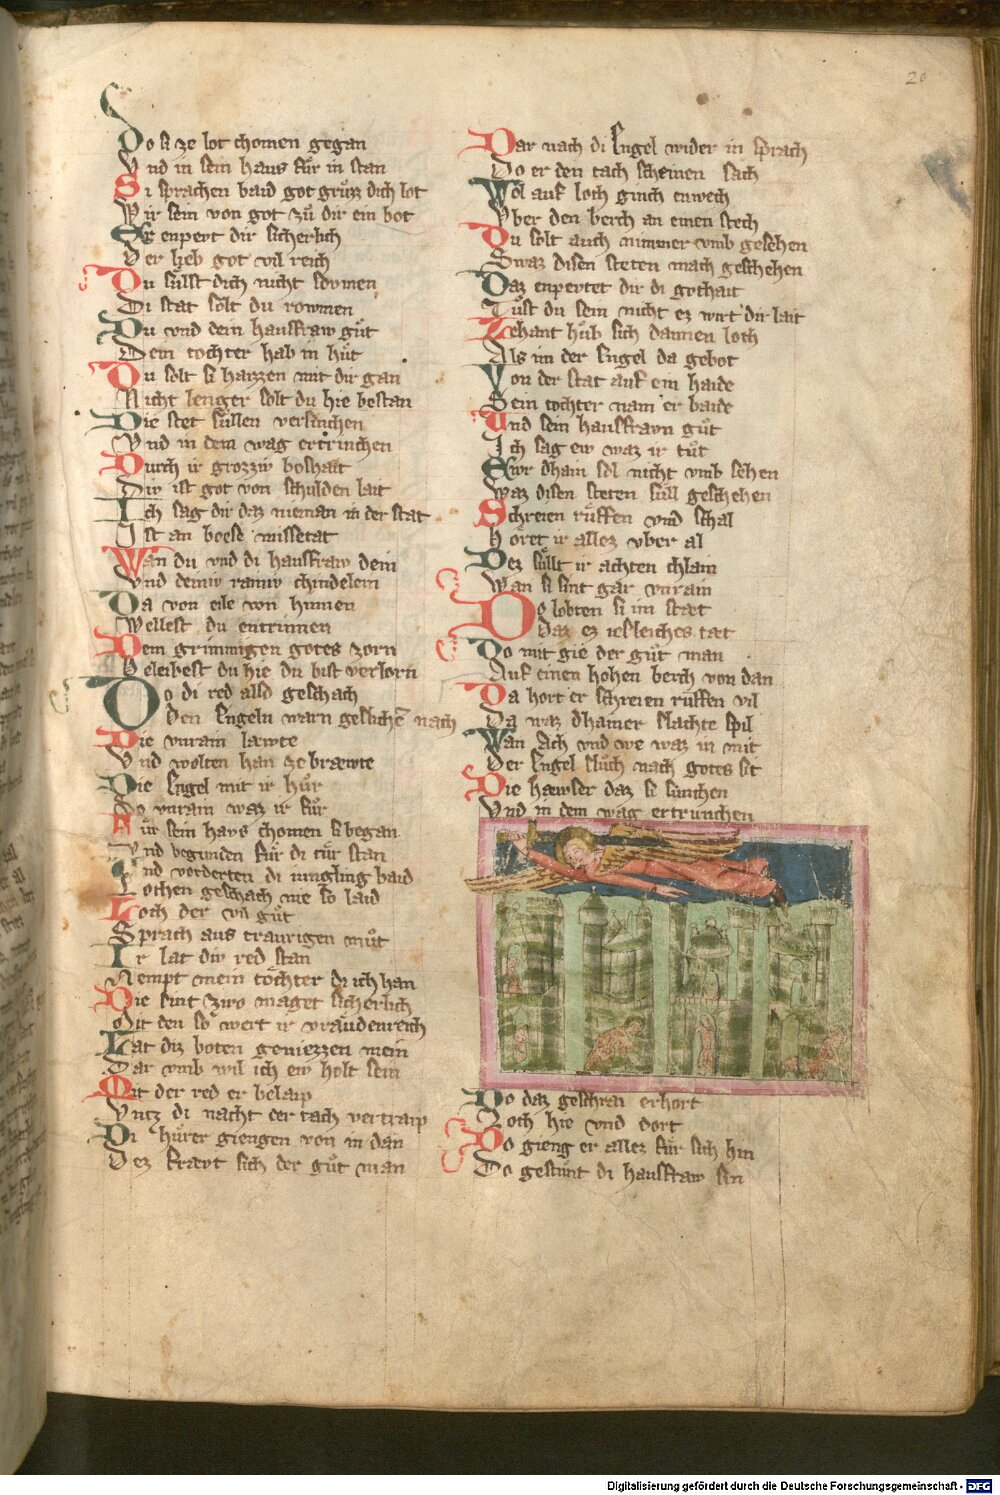 20
Do si ze lot chomen gegan
Vnd in sein haus fuͤr in stan
Si sprachen baid got gruͤzz dich lot
Wir sein von got zuͦ dir ein bot
Er enpevt dir sicherlich
Der lieb got vil reich
Du suͤllst dich nicht sovmen
Di stat solt du rowmen
Du vnd dein hausfraw guͦt
Dein tochter hab in huͦt
Du solt si haizzen mit dir gan
Nicht lenger solt du hie bestan
Die stet suͤllen versinchen
Vnd in dem wag ertrinchen
Durch ir grozziv boshait
Div ist got von schulden lait
Ich sag dir daz nieman in der stat
Ist an boese missetat
Wan du vnd di hausfraw dein
Vnd deiniv rainiv chindelein
Da von eile von hinnen
Wellest du entrinnen
Dem grimmigen gotes zorn
Beleibest du hie du bist verlorn
Do di red allso geschach
Den Engeln warn geslichē nach
Die vnrain læwte
Vnd wolten han ze bræwte
Die Engel mit ir huͦr
So vnrain waz ir fuͦr
Fuͤr sein havs chomen si began
Vnd begunden fuͤr di tuͤr stan
Vnd vorderten di iungling baid
Lothen geschach nie so laid
Loth der vil guͦt
Sprach aus traurigen muͦt
Ir lat div red stan
Nempt mein toͤchter di ich han
Die sint zwo maget sicherlich
Mit den so wert ir vraͤudenreich
Lat diz boten geniezzen mein
Dar vmb wil ich ew holt sein
Mit der red er belaip
Vntz di nacht der tach vertraip
Di huͦrer giengen von in dan
Dez fraevt sich der guͦt man
Dar nach di Engel wider in sprach
Do er den tach scheinen sach
Wol auf loth ginch enwech
Vber den berch an einen stech
Du solt auch nimmer vmb gesehen
Swaz disen steten mach geschehen
Daz enpevtet dir di gothait
Tuͦst du sein nicht ez wirt dir lait
Zehant huͦb sich dannen loth
Als im der Engel da gebot
Von der stat auf ein haide
Sein tochter nam er baide
Vnd sein hausfravn guͦt
Ich sag ew waz ir tuͦt
Ewr dhain sol nicht vmb sehen
Waz disen steten suͤll geschehen
Schreien ruͤffen vnd schal
Hoͤret ir allez vber al
Dez suͤllt ir achten chlain
Wan si sint gar vnrain
Do lobten si im stæt
Daz ez iesleiches tæt
Do mit gie der guͦt man
Auf einen hohen berch von dan
Da hort er schreien ruͤffen vil
Da waz dhainer slachte spil
Wan Ach vnd we waz in mit
Der Engel sluͦch nach gotes sit
Die hæwser daz si sunchen
Vnd in dem wag ertrunchen
Do daz geschrai erhort
Loth hie vnd dort
Do gieng er allez fuͤr sich hin
Do gestuͦnt di hausfraw sin
Digitalisierung gefördert durch die Deutsche Forschungsgemeinschaft - DFG